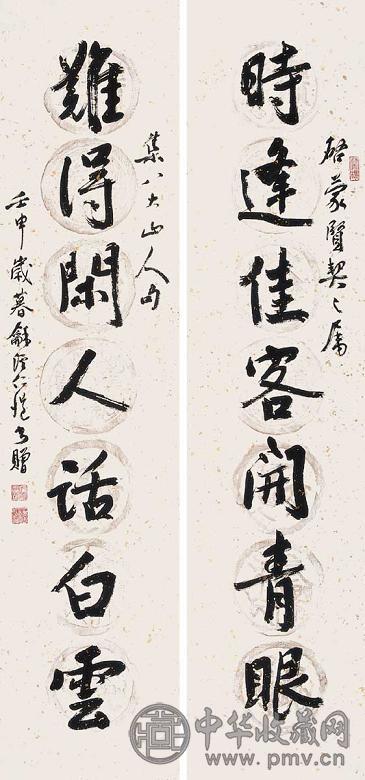 啓蒙賢契之屬
時逢佳客開青眼
集八大山人句
難得閑人話白雲
壬申歲暮龢溪仁愷書贈
中华收藏网
www.pmv.cn